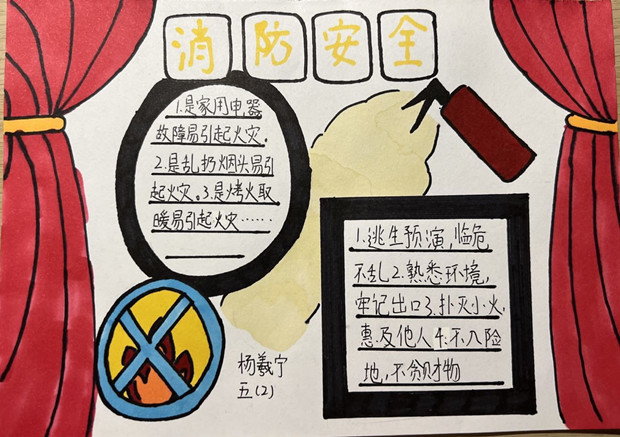 消防安全
1.是家用电器
故障易引起火灾.
2.是乱扔烟头易引
起火灾。3.是烤火取
暖易引起火灾……
1.逃生预演,临危
不乱2.熟悉环境,
牢记出口3.扑灭小火,
惠及他人4.不入险
地,不贪财物
杨羲宁
五(2)